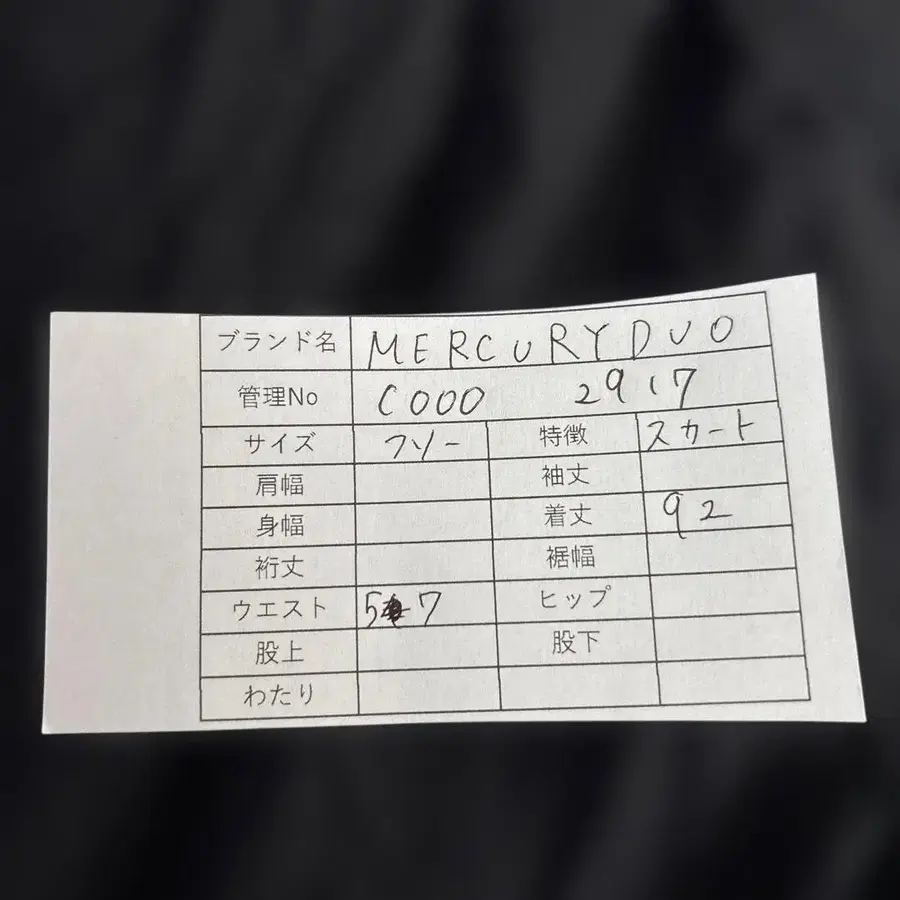 ブランド名 MERCURYDUO
管理No C000 2917
サイズ フリー 特徴 スカート
肩幅 袖丈
身幅 着丈 92
裄丈 裾幅
ウエスト 57 ヒップ
股上 股下
わたり